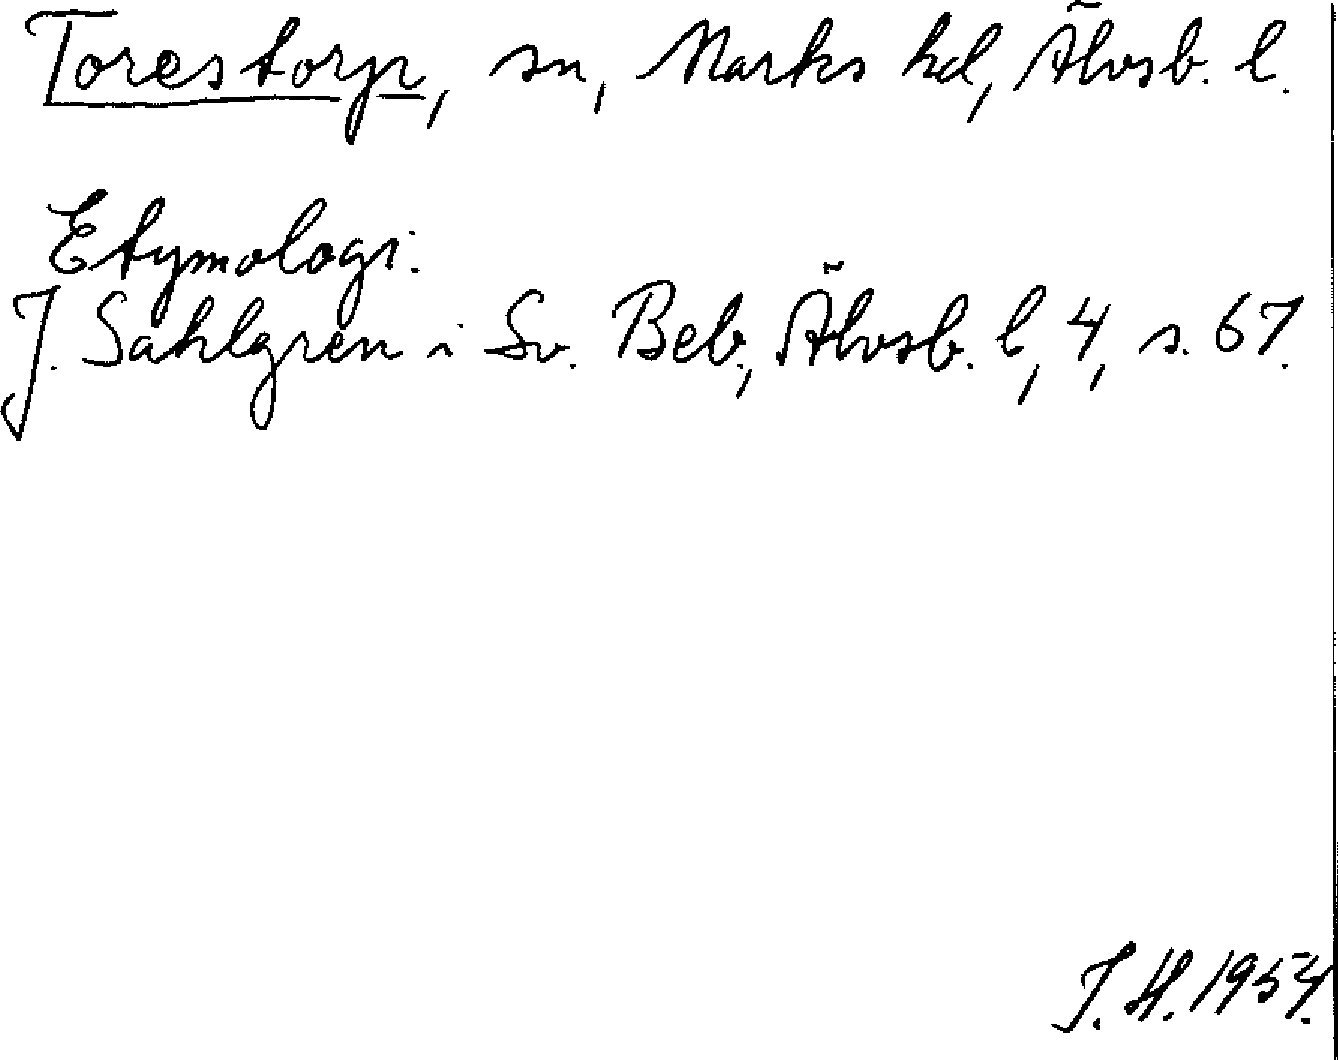 Torestorp, sn, Marks hd, Älvsb. l.
Etymologi:
J. Sahlgren i Sv. Beb., Älvsb. l, 4, s. 67.
J. H. 1954.